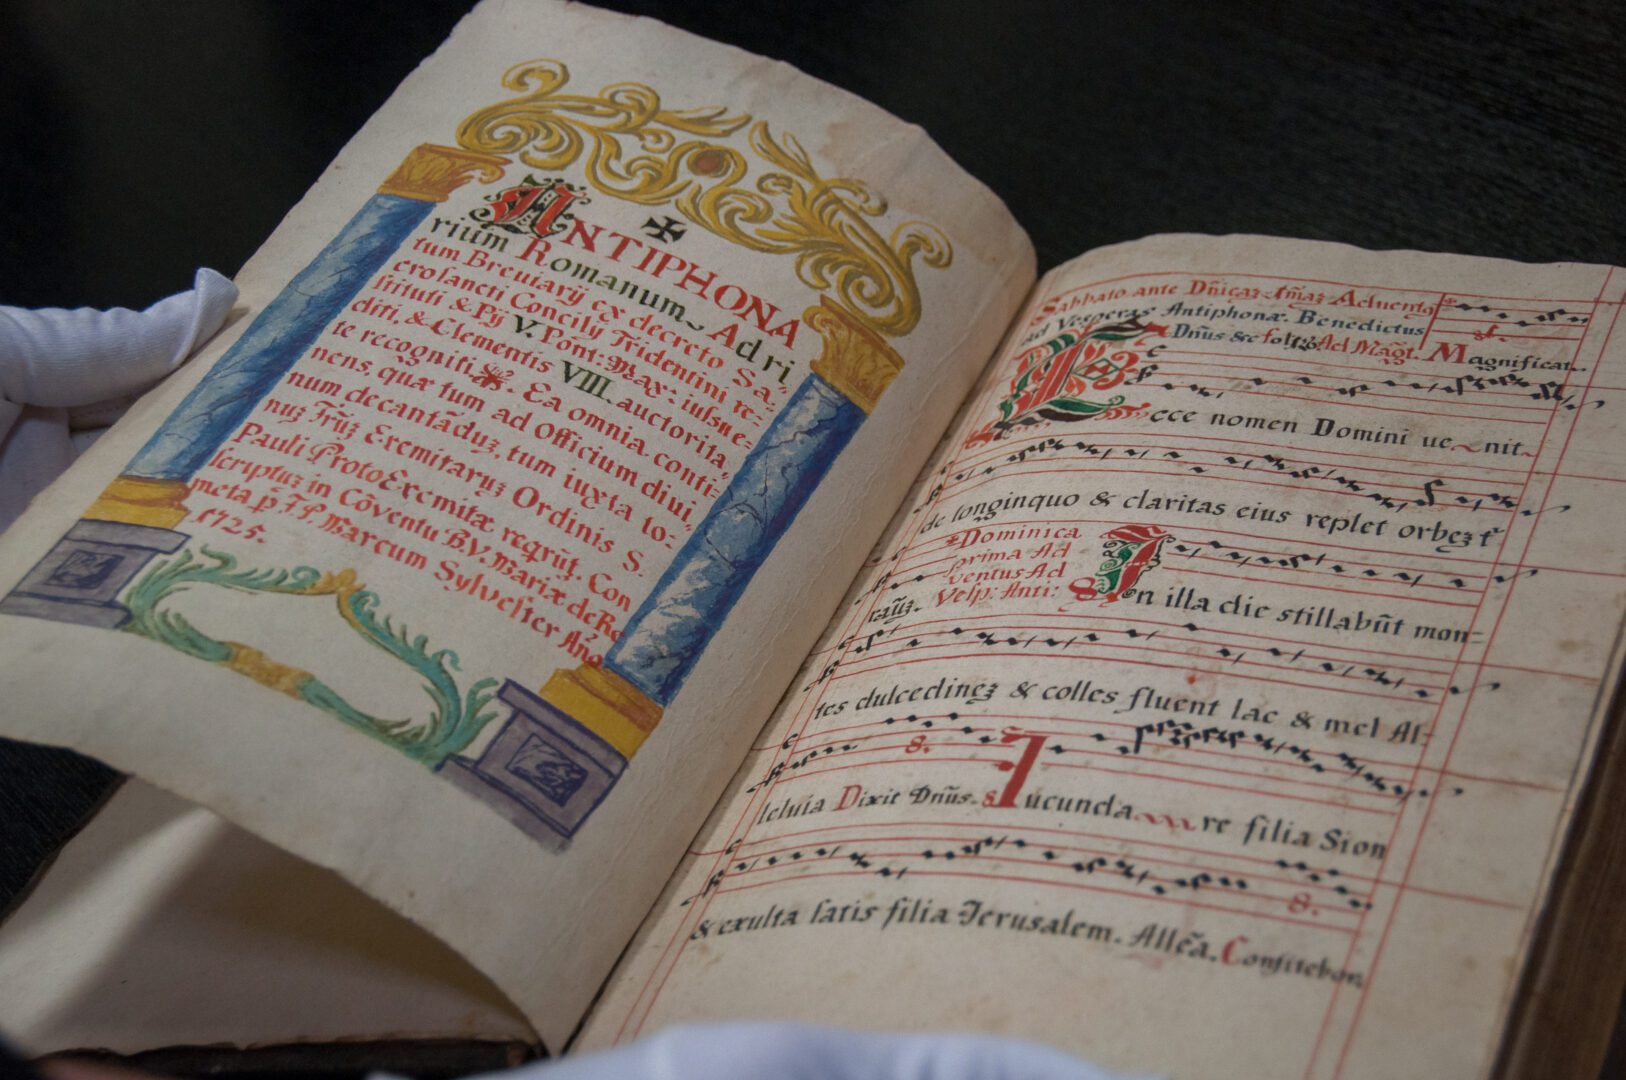 ANTIPHONA
rium Romanum Ad ri
tum Breuiarÿ ex decreto Sa-
crosancti Concilÿ Tridentini re-
stituti & Pÿ V. Pont: Max: iussu e-
diti, & Clementis VIII. auctorita,
te recogniti. Ea omnia conti-
nens, quæ tum ad Officium diui,
num decantãduʒ, tum iuxta to-
nuʒ Frũʒ Exemitaruʒ Ordinis S.
Pauli ProtoExemitæ reqrũt. Con
scriptuʒ in Cõventu B.V. Mariæ de Re
meta p̃ F.P. Marcum Sylvester Año
1725.
Sabbato ante Dñicaʒ Imaʒ Adventꝯ
ad Vesperas Antiphonæ. Benedictus
Dñus &c Ad Magt. Magnificat.
Ecce nomen Domini ue~nit
de longinquo & claritas eius replet orbeʒ t
raũʒ.
Dominica
prima Ad
ventus Ad
Vesp: Anti: 8
In illa die stillabũt mon-
tes dulcedineʒ & colles fluent lac & mel Al-
8.
leluia Dixit Dñus. 8 Iucunda re filia Sion
8.
& exulta satis filia Jerusalem. Allẽa. Confitebor